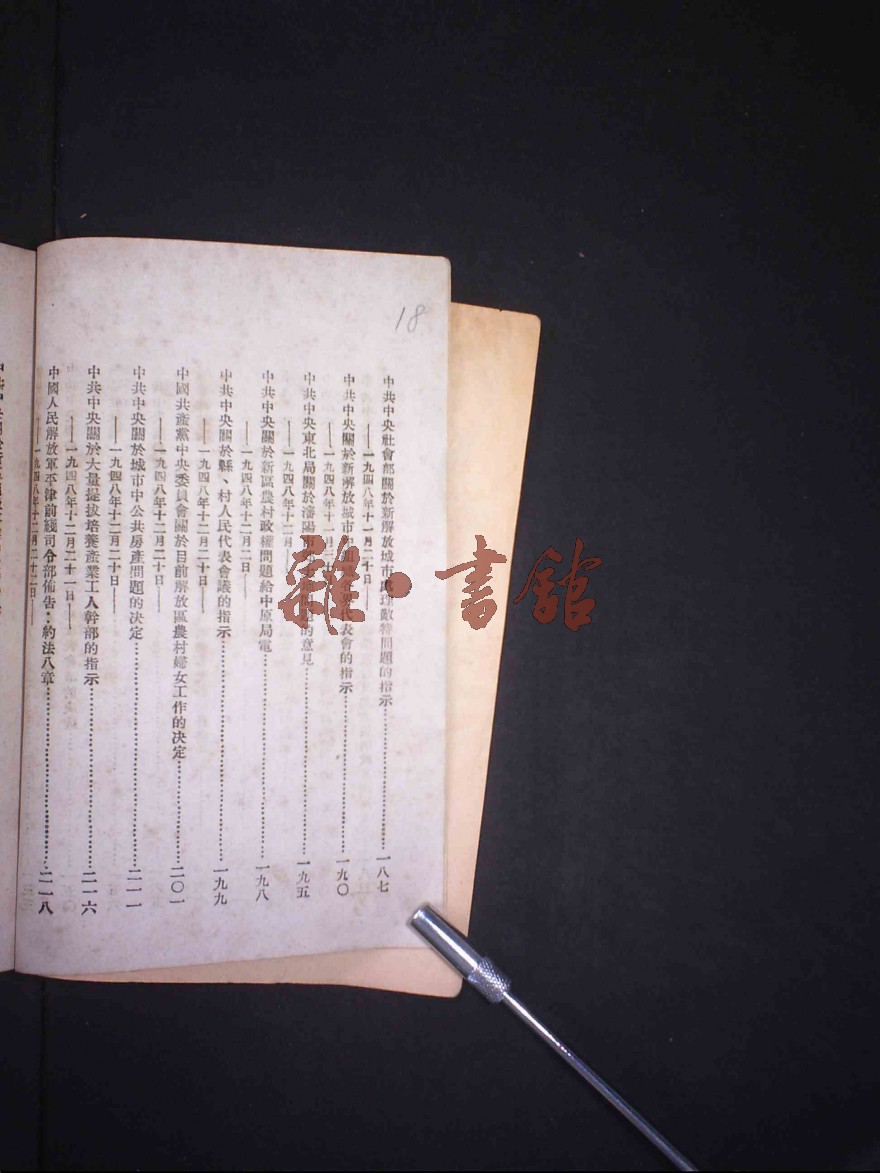 18
中共中央社會部關於新解放城市處理敵特問題的指示……一八七
——一九四八年十一月二十日——
中共中央關於新解放城市 各界代表會的指示……一九〇
——一九四八年十一月三十
中共中央東北局關於瀋陽市 的意見……一九五
——一九四八年十二月
中共中央關於新區農村政權問題給中原局電……一九八
——一九四八年十二月二日——
中共中央關於縣、村人民代表會議的指示……一九九
——一九四八年十二月二十日——
中國共產黨中央委員會關於目前解放區農村婦女工作的决定……二〇一
——一九四八年十二月二十日——
中共中央關於城市中公共房產問題的决定……二一一
——一九四八年十二月二十日——
中共中央關於大量提拔培養產業工人幹部的指示……二一六
——一九四八年十二月二十一日——
中國人民解放軍平津前綫司令部佈告：約法八章……二一八
——一九四八年十二月二十二日——
雜·書館